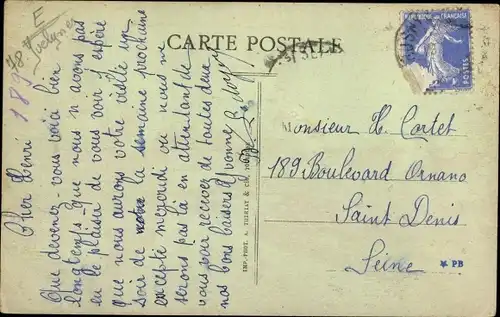 E
78
Yvelines
189
CARTE POSTALE
REPUBLIQUE FRANÇAISE
POSTES
Cher Henri
Que devenez vous voici bien
longtemps que nous n avons pas
eu le plaisir de vous voir j espère
que nous aurons votre visite un
soir de la semaine prochaine
excepté mercredi ou nous ne
serons pas là en attendant de
vous voir recevez de toutes deux
nos bons baisers Yvonne
IMP.-PHOT. A. THIRIAT & CIE
Monsieur H. Cortet
189 Boulevard Ornano
Saint Denis
Seine
★ PB